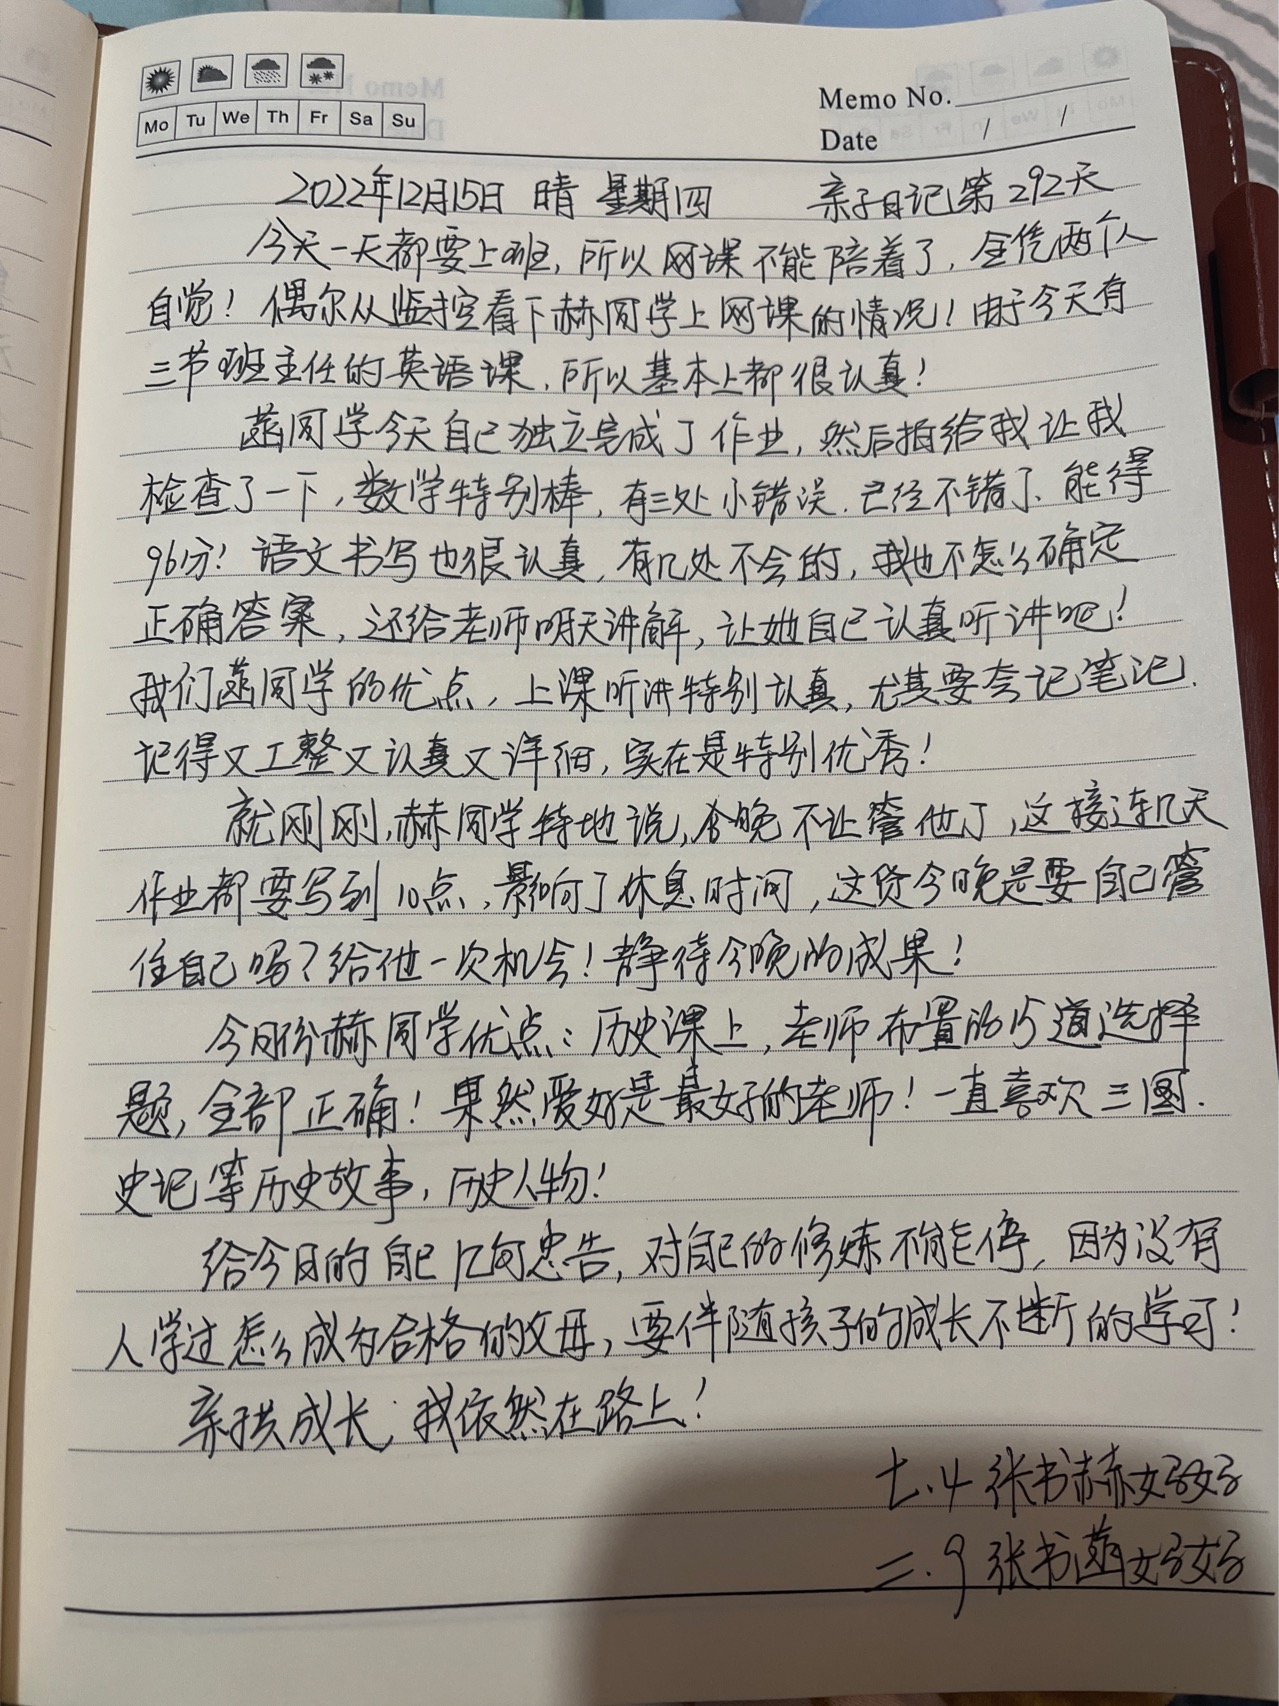 Mo Tu We Th Fr Sa Su
Memo No.
Date / /
2022年12月15日 晴 星期四 亲子日记第292天
今天一天都要上班,所以网课不能陪着了,全凭两个人
自觉!偶尔从监控看下赫同学上网课的情况!由于今天有
三节班主任的英语课,所以基本上都很认真!
菡同学今天自己独立完成了作业,然后拍给我让我
检查了一下,数学特别棒,有三处小错误.已经不错了、能得
96分!语文书写也很认真,有几处不会的,我也不怎么确定
正确答案,还给老师明天讲解,让她自己认真听讲吧!
我们菡同学的优点,上课听讲特别认真,尤其要夸记笔记.
记得又工整又认真又详细,实在是特别优秀!
就刚刚,赫同学特地说,今晚不让管他了,这接连几天
作业都要写到10点,影响了休息时间,这货今晚是要自己管
住自己吗?给他一次机会!静待今晚的成果!
今日份赫同学优点:历史课上,老师布置的15道选择
题,全部正确!果然爱好是最好的老师!一直喜欢三国.
史记等历史故事,历史人物!
给今日的自己几句忠告,对自己的修炼不能停,因为没有
人学过怎么成为合格的父母,要伴随孩子的成长不断的学习!
亲子共成长,我依然在路上!
七.4 张书赫好好
二.9 张书菡好好